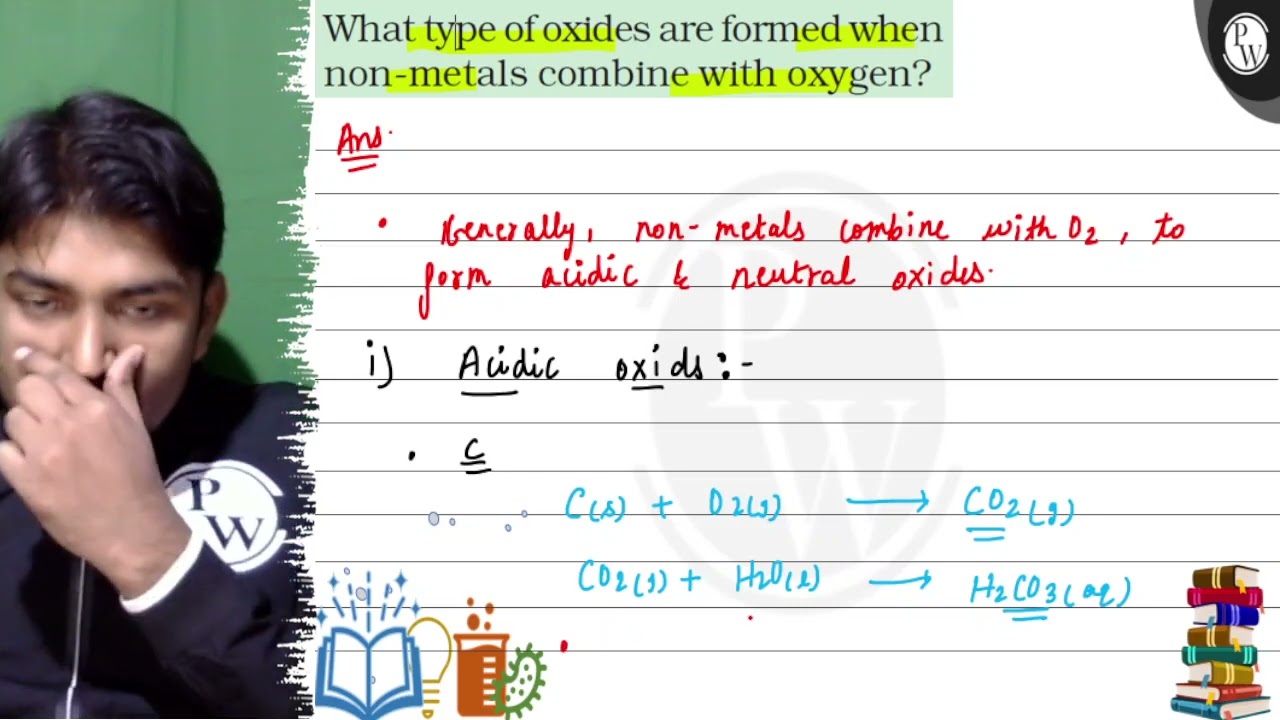 What type of oxides are formed when
non-metals combine with oxygen?
PW
Ans.
• Generally, non-metals combine with O2, to
form acidic & neutral oxides.
i) Acidic oxids:-
• C
C(s) + O2(g) → CO2(g)
CO2(g) + H2O(l) → H2CO3(aq)
PW
PW